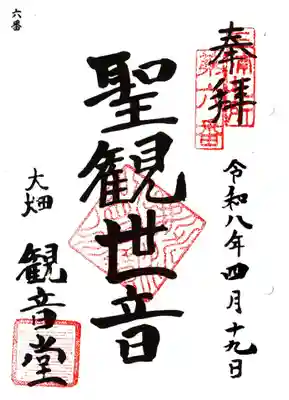 奉拝
第六番
令和八年四月十九日
聖観世音
大畑
観音堂
六番